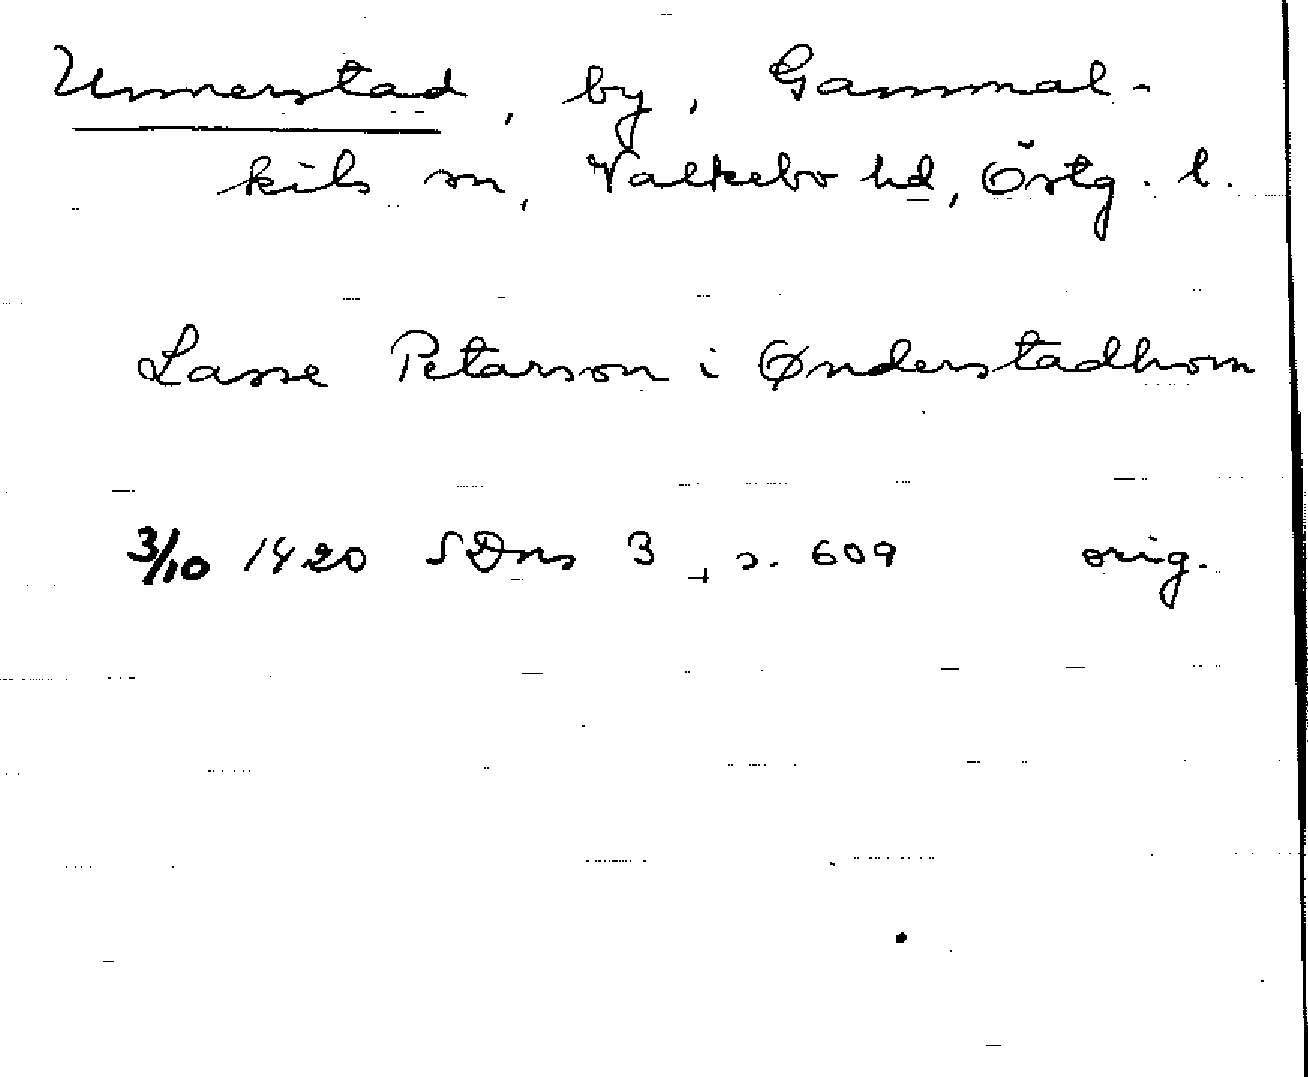 Unnerstad, by, Gammal-
kils sn, Valkebo hd, Östg. l.
Lasse Petarson i Ønderstadhom
3/10 1420 SDns 3, s. 609 orig.